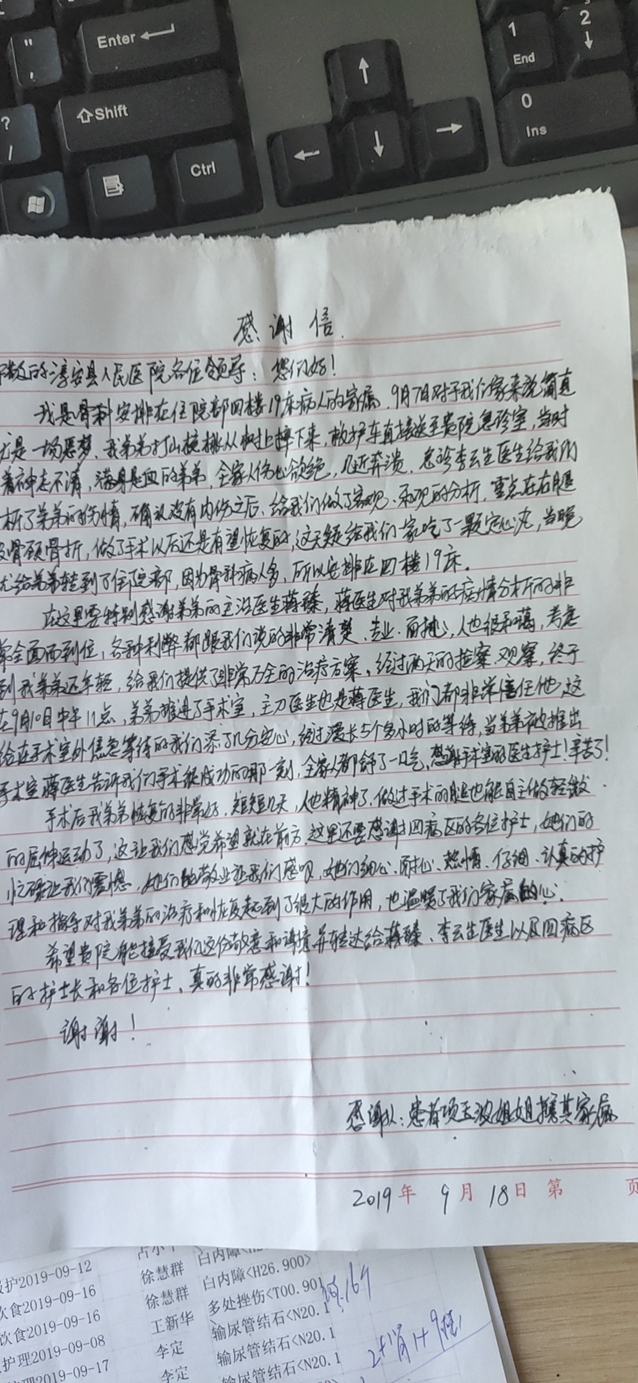 Enter
Shift
Ctrl
1
End
2
0
Ins
?
/
感谢信
敬的淳安县人民医院各位领导：您们好！
我是骨科安排在住院部四楼19床病人的家属，9月7日对于我们家来说简直
是一场恶梦，我弟弟打山核桃从树上摔下来，救护车直接送至贵院急诊室，当时
着神志不清，满身是血的弟弟，全家人伤心欲绝，几近奔溃，急诊李云生医生给我们
析了弟弟的伤情，确认没有内伤之后，给我们做了客观、乐观的分析，重点在右腿
骨颈骨折，做了手术以后还是有望恢复的，这无疑给我们一家吃了一颗定心丸，当晚
给弟弟转到了住院部，因为骨科病人多，所以安排在四楼19床。
在这里要特别感谢弟弟的主治医生蒋臻，蒋医生对我弟弟的病情分析的非
常全面而到位，各种利弊都跟我们说的非常清楚、专业、而耐心，人也很和蔼，考虑
到我弟弟还年轻，给我们提供了非常万全的治疗方案，经过两天的检察、观察，终于
在9月10日中午11点，弟弟推进了手术室，主刀医生也是蒋医生，我们都非常信任他，这
给在手术室外焦急等待的我们添了几分安心，经过漫长5个多小时的等待，当弟弟被推出
手术室蒋医生告诉我们手术很成功的那一刻，全家人都舒了一口气，感谢手术室的医生护士！辛苦了！
手术后我弟弟恢复的非常好，短短几天，人也精神了，做过手术的腿也能自主做轻微
的屈伸运动了，这让我们感觉希望就在前方，这里还要感谢四病区的各位护士，她们的
忙碌让我们震憾，她们的敬业让我们感叹，她们细心、耐心、热情、仔细、认真的护
理和指导对我弟弟的治疗和恢复起到了很大的作用，也温暖了我们家属的心。
希望贵院能接受我们这份敬意和谢情并转达给蒋臻、李云生医生以及四病区
的护士长和各位护士，真的非常感谢！
谢谢！
感谢人：患者项玉波姐姐携其家属
2019年9月18日 第 页
护2019-09-12 徐慧群 白内障<H26.900>
饮食2019-09-16 徐慧群 多处挫伤<T00.901
饮食2019-09-16 王新华 输尿管结石<N20.1
护理2019-09-08 李定 输尿管结石<N20.1
护理2019-09-17 李定